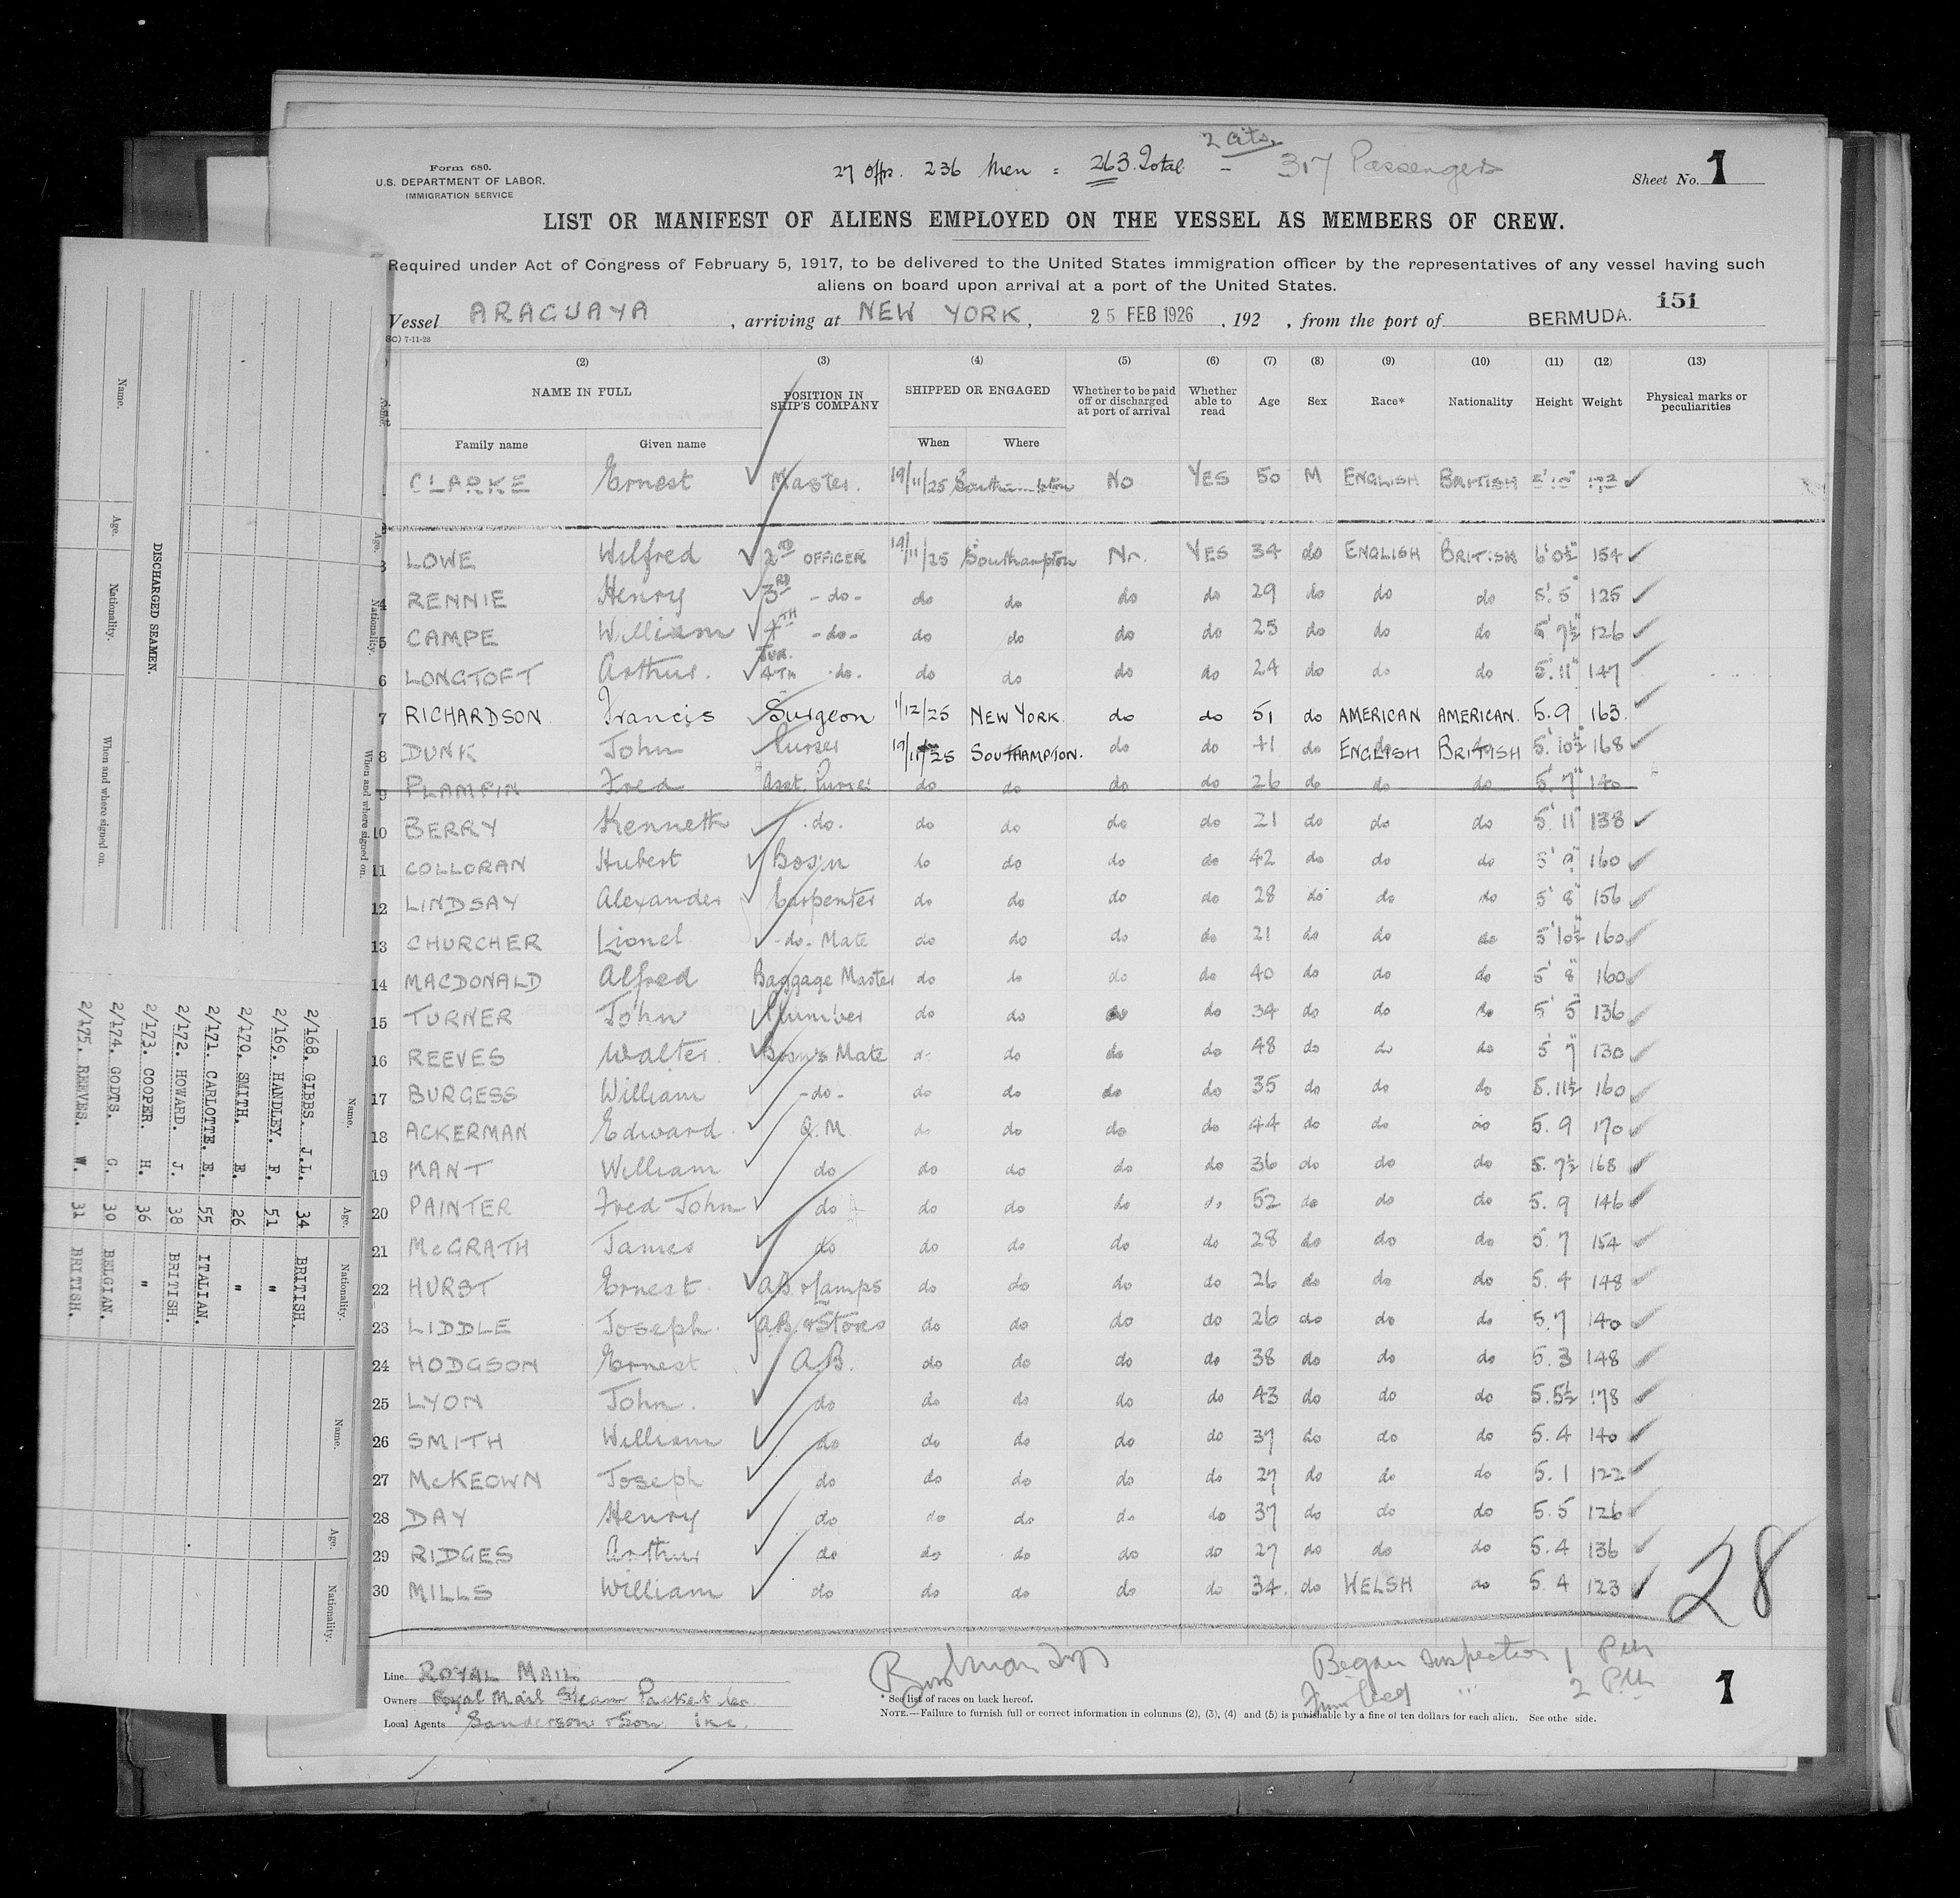 Form 680.
U.S. DEPARTMENT OF LABOR.
IMMIGRATION SERVICE
27 Offrs. 236 Men = 263 Total - 317 Passengers
2 cits.
Sheet No. 1
LIST OR MANIFEST OF ALIENS EMPLOYED ON THE VESSEL AS MEMBERS OF CREW.
Required under Act of Congress of February 5, 1917, to be delivered to the United States immigration officer by the representatives of any vessel having such
aliens on board upon arrival at a port of the United States.
151
Vessel ARAGUAYA, arriving at NEW YORK, 25 FEB 1926, 192 , from the port of BERMUDA.
(2) (3) (4) (5) (6) (7) (8) (9) (10) (11) (12) (13)
NAME IN FULL POSITION IN SHIP'S COMPANY SHIPPED OR ENGAGED Whether to be paid off or discharged at port of arrival Whether able to read Age Sex Race* Nationality Height Weight Physical marks or peculiarities
Family name Given name When Where
CLARKE Ernest Master. 19/11/25 Southampton No YES 50 M ENGLISH BRITISH
3 LOWE Wilfred 2ND OFFICER 19/11/25 Southampton No. YES 34 do ENGLISH BRITISH 6'0½" 154
4 RENNIE Henry 3RD -do- do do do do 29 do do do 5'.5" 125
5 CAMPE William 4TH -do- do do do do 25 do do do 5'7½" 126
6 LONGTOFT Arthur. JUR. 4TH .do. do do do do 24 do do do 5'.11" 147
7 RICHARDSON Francis Surgeon 1/12/25 NEW YORK. do do 51 do AMERICAN AMERICAN. 5.9 163.
8 DUNK John Purser 19/11/25 SOUTHAMPTON. do do 41 do ENGLISH BRITISH 5.'10½" 168
9 PLAMPIN Fred Asst. Purser do do do do 26 do do do 5'.7" 140
10 BERRY Kenneth .do. do do do do 21 do do do 5'.11" 138
11 COLLORAN Hubert Bos'n do do do do 42 do do do 5'9" 160
12 LINDSAY Alexander Carpenter do do do do 28 do do do 5'8" 156
13 CHURCHER Lionel -do- Mate do do do do 21 do do do 5'10½" 160
14 MACDONALD Alfred Baggage Master do do do do 40 do do do 5'8" 160
15 TURNER John Plumber do do do do 34 do do do 5'5" 136
16 REEVES Walter. Bosn's Mate do do do do 48 do do do 5'7 130
17 BURGESS William -do- do do do do 35 do do do 5.11½ 160
18 ACKERMAN Edward. Q.M. do do do do 44 do do do 5.9 170
19 MANT William do do do do do 36 do do do 5.7½ 168
20 PAINTER Fred John do do do do do 52 do do do 5.9 146
21 McGRATH James do do do do do 28 do do do 5.7 154
22 HURST Ernest. A.B. & Lamps do do do do 26 do do do 5.4 148
23 LIDDLE Joseph. A.B. & Stores do do do do 26 do do do 5.7 140
24 HODGSON Ernest A.B. do do do do 38 do do do 5.3 148
25 LYON John. do do do do do 43 do do do 5.5½ 178
26 SMITH William do do do do do 37 do do do 5.4 140
27 McKEOWN Joseph do do do do do 27 do do do 5.1 122
28 DAY Henry do do do do do 37 do do do 5.5 126
29 RIDGES Arthur do do do do do 27 do do do 5.4 136
30 MILLS William do do do do do 34. do WELSH do 5.4 123
28
Line ROYAL MAIL
Owners Royal Mail Steam Packet Co.
Local Agents Sanderson & Son Inc.
Began Inspection 1 PM
Finished " 2 PM
* See list of races on back hereof.
NOTE.—Failure to furnish full or correct information in columns (2), (3), (4) and (5) is punishable by a fine of ten dollars for each alien. See othe side.
1
DISCHARGED SEAMEN.
Name. Age. Nationality. When and where signed on.
Age. Nationality. When and where signed on.
Name. Age. Nationality. Name. Age. Nationality.
2/168. GIBBS. J.L. 34 BRITISH.
2/169. HANDLEY. F. 51 "
2/170. SMITH. E. 26 "
2/171. CARLOTTE. E. 55 ITALIAN.
2/172. HOWARD. J. 38 BRITISH.
2/173. COOPER. H. 36 "
2/174. GODTS. G. 30 BELGIAN.
2/175. REEVES. W. 31 BRITISH.